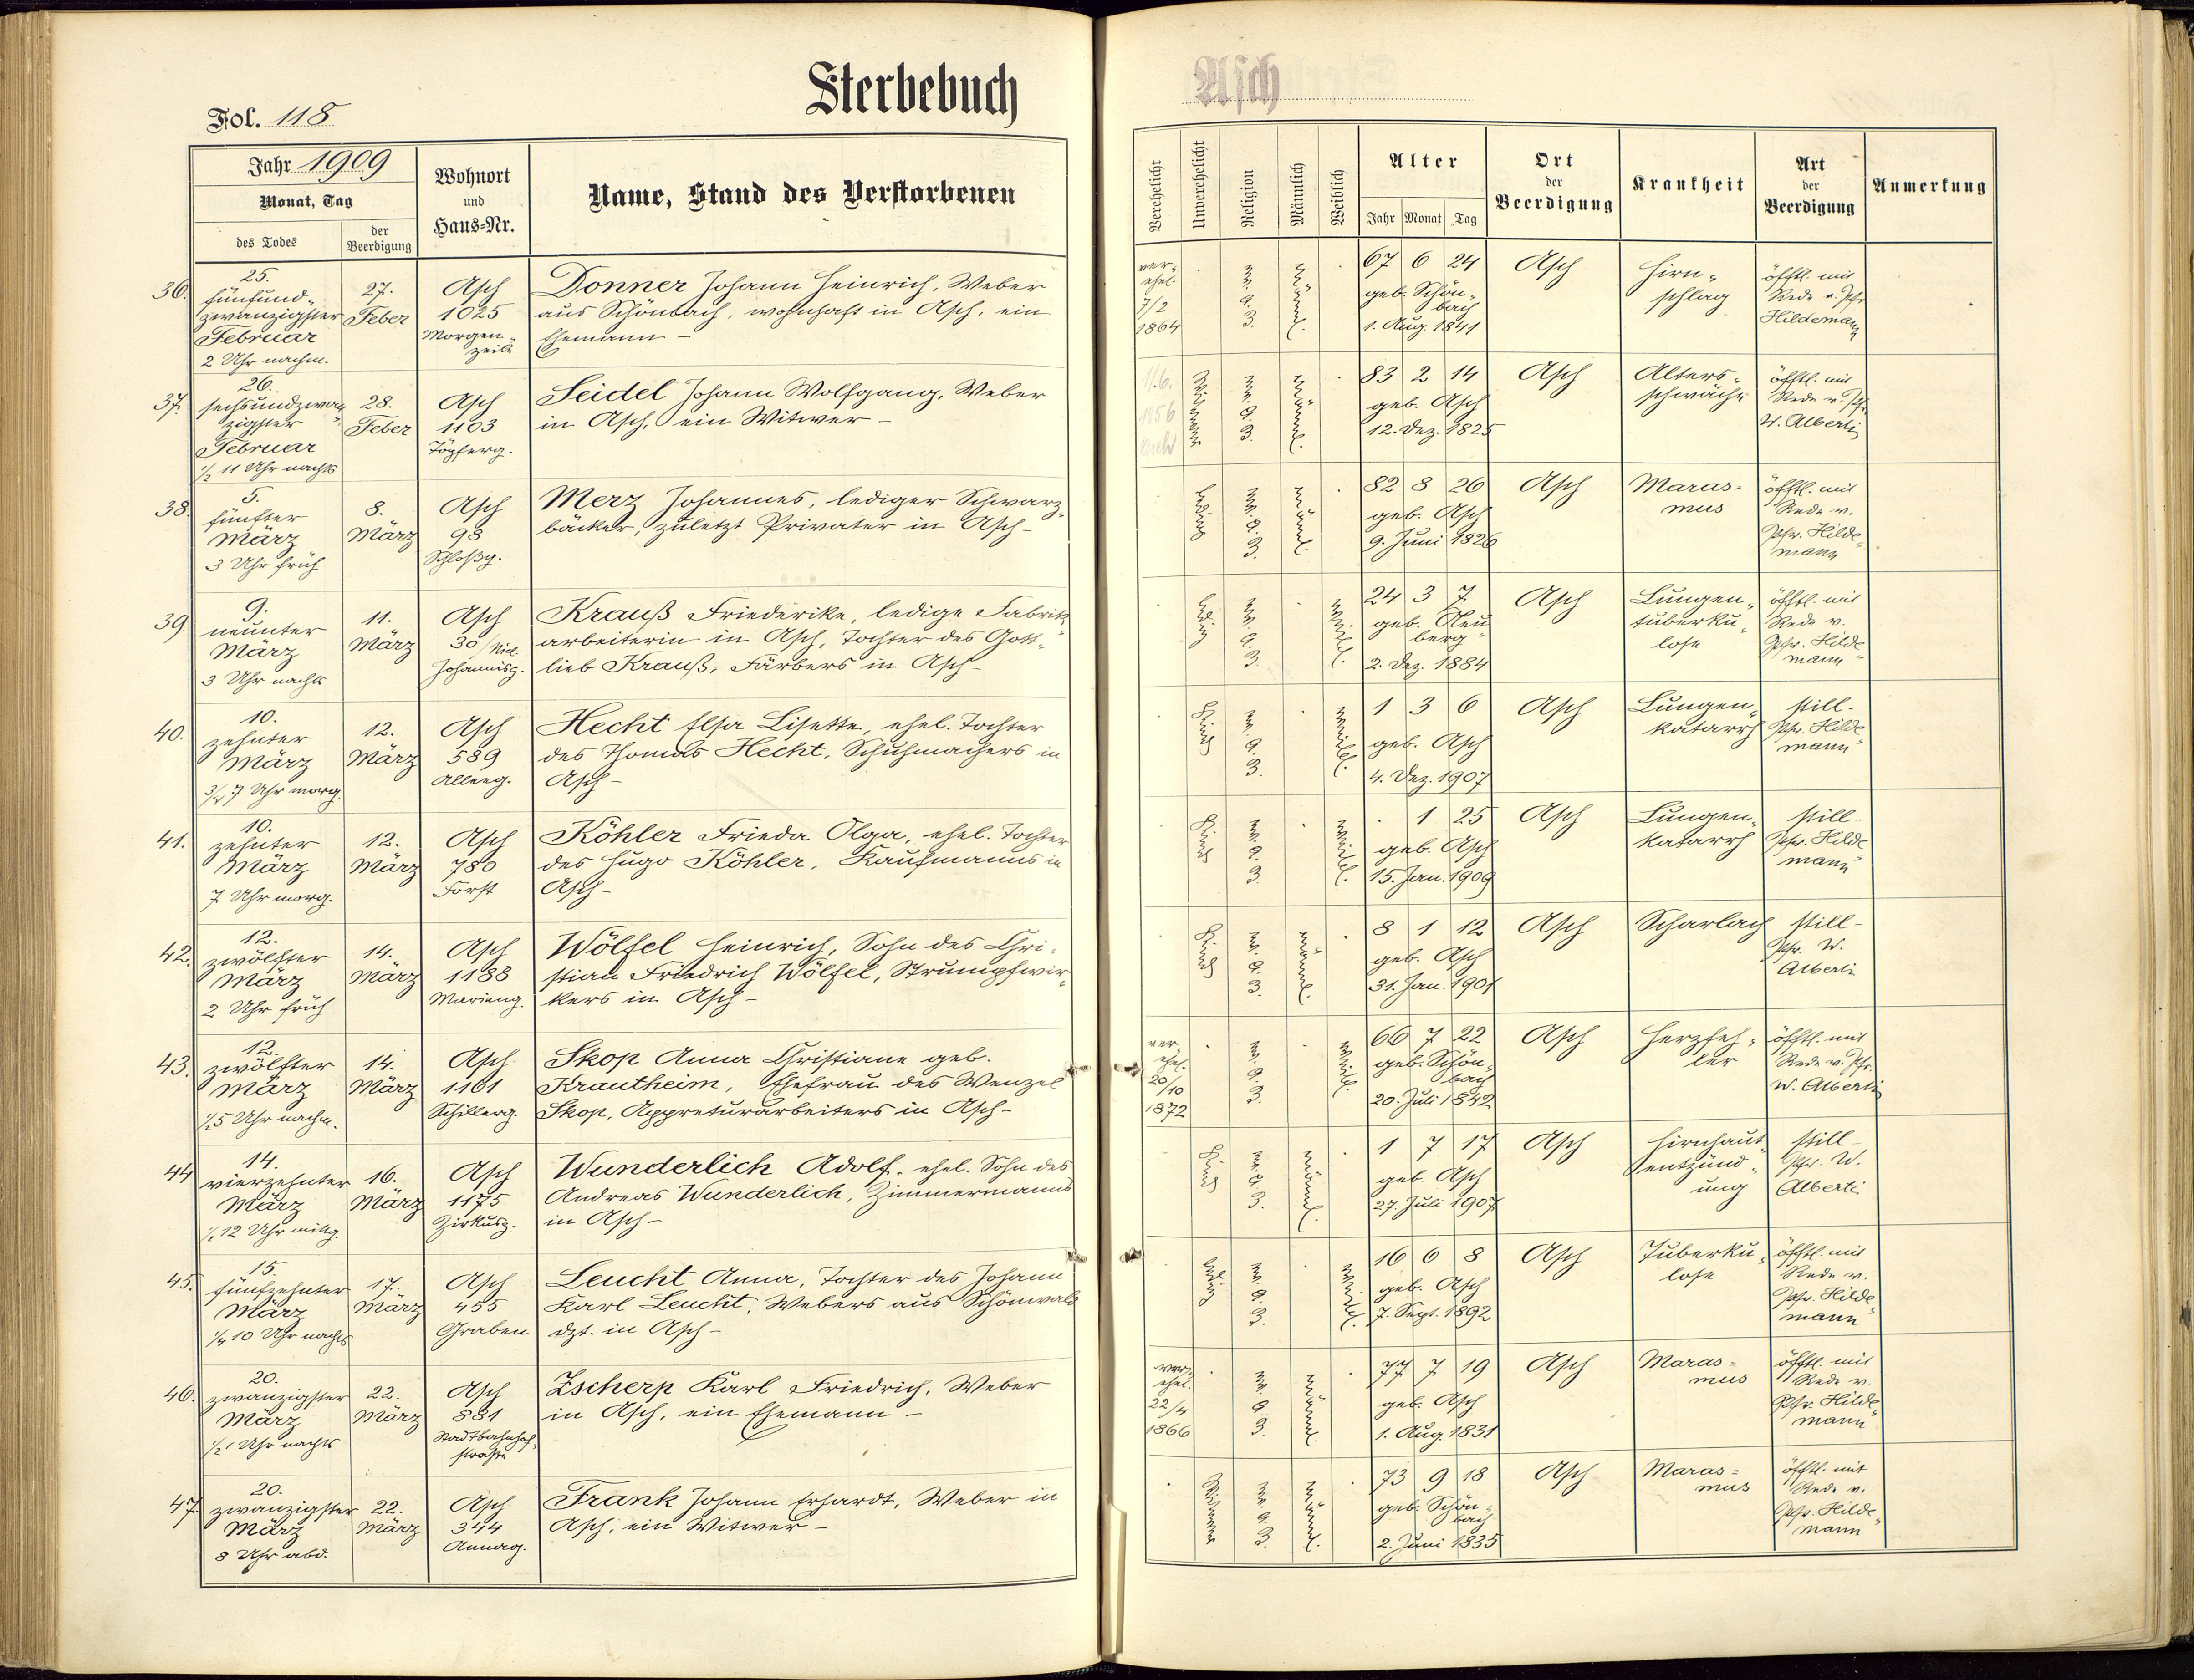 Sterbebuch
Asch
Fol. 118
Jahr 1909
Monat, Tag
des Todes
der Beerdigung
Wohnort
und
Haus-Nr.
Name, Stand des Verstorbenen
Verehelicht
Unverehelicht
Religion
Männlich
Weiblich
Alter
Jahr Monat Tag
Ort
der
Beerdigung
Krankheit
Art
der
Beerdigung
Anmerkung
36.
25.
fünfund-
zwanzigster
Februar
2 Uhr nachm.
27.
Feber
Asch
1025
Morgen-
zeile
Donner Johann Heinrich, Weber
aus Schönbach, wohnhaft in Asch, ein
Ehemann –
ver-
ehel.
7/2
1864
ev. A. B.
männl.
67 6 24
geb. Schön-
bach
1. Aug. 1841
Asch
Hirn-
schlag
öfftl. mit
Rede v. Pfr.
Hildemann
37.
26.
sechsundzwan-
zigster
Februar
1/2 11 Uhr nachts
28.
Feber
Asch
1103
Töpferg.
Seidel Johann Wolfgang, Weber
in Asch, ein Witwer –
1856
Witwer
ev. A. B.
männl.
83 2 14
geb. Asch
12. Dez. 1825
Asch
Alters-
schwäche
öfftl. mit
Rede v. Pfr.
W. Alberti
38.
5.
fünfter
März
3 Uhr früh
8.
März
Asch
98
Schloßg.
Merz Johannes, lediger Schwarz-
bäcker, zuletzt Privater in Asch –
ledig
ev. A. B.
männl.
82 8 26
geb. Asch
9. Juni 1826
Asch
Maras-
mus
öfftl. mit
Rede v.
Pfr. Hilde-
mann
39.
9.
neunter
März
3 Uhr nachts
11.
März
Asch
30/Nied.
Johannisg.
Krauß Friederike, ledige Fabriks-
arbeiterin in Asch, Tochter des Gott-
lieb Krauß, Färbers in Asch –
ledig
ev. A. B.
weibl.
24 3 7
geb. Neu-
berg
2. Dez. 1884
Asch
Lungen-
tuberku-
lose
öfftl. mit
Rede v.
Pfr. Hilde-
mann
40.
10.
zehnter
März
3/4 7 Uhr morg.
12.
März
Asch
589
Alleeg.
Hecht Elsa Lisette, ehel. Tochter
des Thomas Hecht, Schuhmachers in
Asch –
Kind
ev. A. B.
weibl.
1 3 6
geb. Asch
4. Dez. 1907
Asch
Lungen-
katarrh
still –
Pfr. Hilde-
mann
41.
10.
zehnter
März
7 Uhr morg.
12.
März
Asch
780
Forst
Köhler Frieda Olga, ehel. Tochter
des Hugo Köhler, Kaufmanns in
Asch –
Kind
ev. A. B.
weibl.
1 25
geb. Asch
15. Jan. 1909
Asch
Lungen-
katarrh
still –
Pfr. Hilde-
mann
42.
12.
zwölfter
März
2 Uhr früh
14.
März
Asch
1188
Marieng.
Wölfel Heinrich, Sohn des Chri-
stian Friedrich Wölfel, Strumpfwir-
kers in Asch –
Kind
ev. A. B.
männl.
8 1 12
geb. Asch
31. Jan. 1901
Asch
Scharlach
still –
Pfr. W.
Alberti
43.
12.
zwölfter
März
1/2 5 Uhr nachm.
14.
März
Asch
1101
Schillerg.
Skop Anna Christiane geb.
Krautheim, Ehefrau des Wenzel
Skop, Appreturarbeiters in Asch –
ver-
ehel.
20/10
1872
ev. A. B.
weibl.
66 7 22
geb. Schön-
bach
20. Juli 1842
Asch
Herzfeh-
ler
öfftl. mit
Rede v. Pfr.
W. Alberti
44.
14.
vierzehnter
März
1/2 12 Uhr mittg.
16.
März
Asch
1175
Zirkusg.
Wunderlich Adolf, ehel. Sohn des
Andreas Wunderlich, Zimmermanns
in Asch –
Kind
ev. A. B.
männl.
1 7 17
geb. Asch
27. Juli 1907
Asch
Hirnhaut-
entzünd-
ung
still –
Pfr. W.
Alberti
45.
15.
fünfzehnter
März
1/4 10 Uhr nachts
17.
März
Asch
455
Graben
Leucht Anna, Tochter des Johann
Karl Leucht, Webers aus Schönwald
dzt. in Asch –
ledig
ev. A. B.
weibl.
16 6 8
geb. Asch
7. Sept. 1892
Asch
Tuberku-
lose
öfftl. mit
Rede v.
Pfr. Hilde-
mann
46.
20.
zwanzigster
März
1/2 1 Uhr nachts
22.
März
Asch
881
Stadtbahnhof-
straße
Zscherp Karl Friedrich, Weber
in Asch, ein Ehemann –
ver-
ehel.
22/4
1866
ev. A. B.
männl.
77 7 19
geb. Asch
1. Aug. 1831
Asch
Maras-
mus
öfftl. mit
Rede v.
Pfr. Hilde-
mann
47.
20.
zwanzigster
März
8 Uhr abd.
22.
März
Asch
344
Annag.
Frank Johann Erhardt, Weber in
Asch, ein Witwer –
Witwer
ev. A. B.
männl.
73 9 18
geb. Schön-
bach
2. Juni 1835
Asch
Maras-
mus
öfftl. mit
Rede v.
Pfr. Hilde-
mann